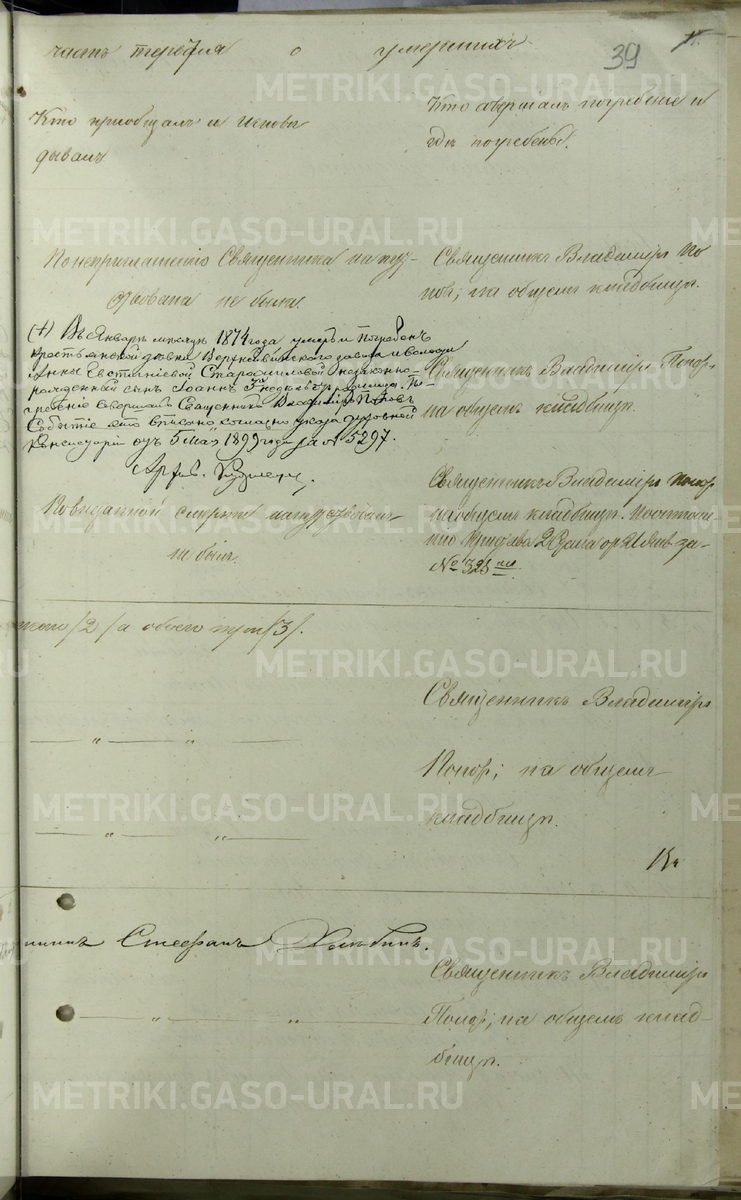 39
часть третья о умершихъ
Кто пріобщалъ и исповѣ
дывалъ
Кто совершалъ погребеніе и
гдѣ погребены.
По неприглашенію Священника напут
ствована не была.
Священникъ Владиміръ По
повъ; на общемъ кладбищѣ.
(+) Въ Январѣ мѣсяцѣ 1874 года умеръ и погребенъ
крестьянской дѣвки Верх завода и волости
Анны Старо незаконно-
рожденный сынъ Іоаннъ родимца. По
гребеніе совершалъ Священникъ Владиміръ Поповъ
Событіе это вписано согласно указа Духовной
Консисторіи отъ 5 мая 1899 года за № 5297.
Священникъ Владиміръ Поповъ
на общемъ кладбищѣ.
По внезапной смерти напутствованъ
не былъ.
Священникъ Владиміръ Поповъ
на общемъ кладбищѣ. По отноше-
нію 2 Стана отъ 21 Янв. за
№ 323
пола /2/ а обоего пола /3/.
Священникъ Владиміръ
Поповъ; на общемъ
кладбищѣ.
Стефанъ
Священникъ Владиміръ
Поповъ; на общемъ клад-
бищѣ.
METRIKI.GASO-URAL.RU